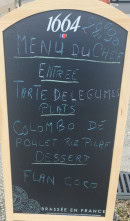 1664
MENU DU CHEF
ENTREE
TARTE DE LEGUMES
PLATS
COLOMBO DE
POULET RIZ PILAF
DESSERT
FLAN COCO
BRASSÉE EN FRANCE